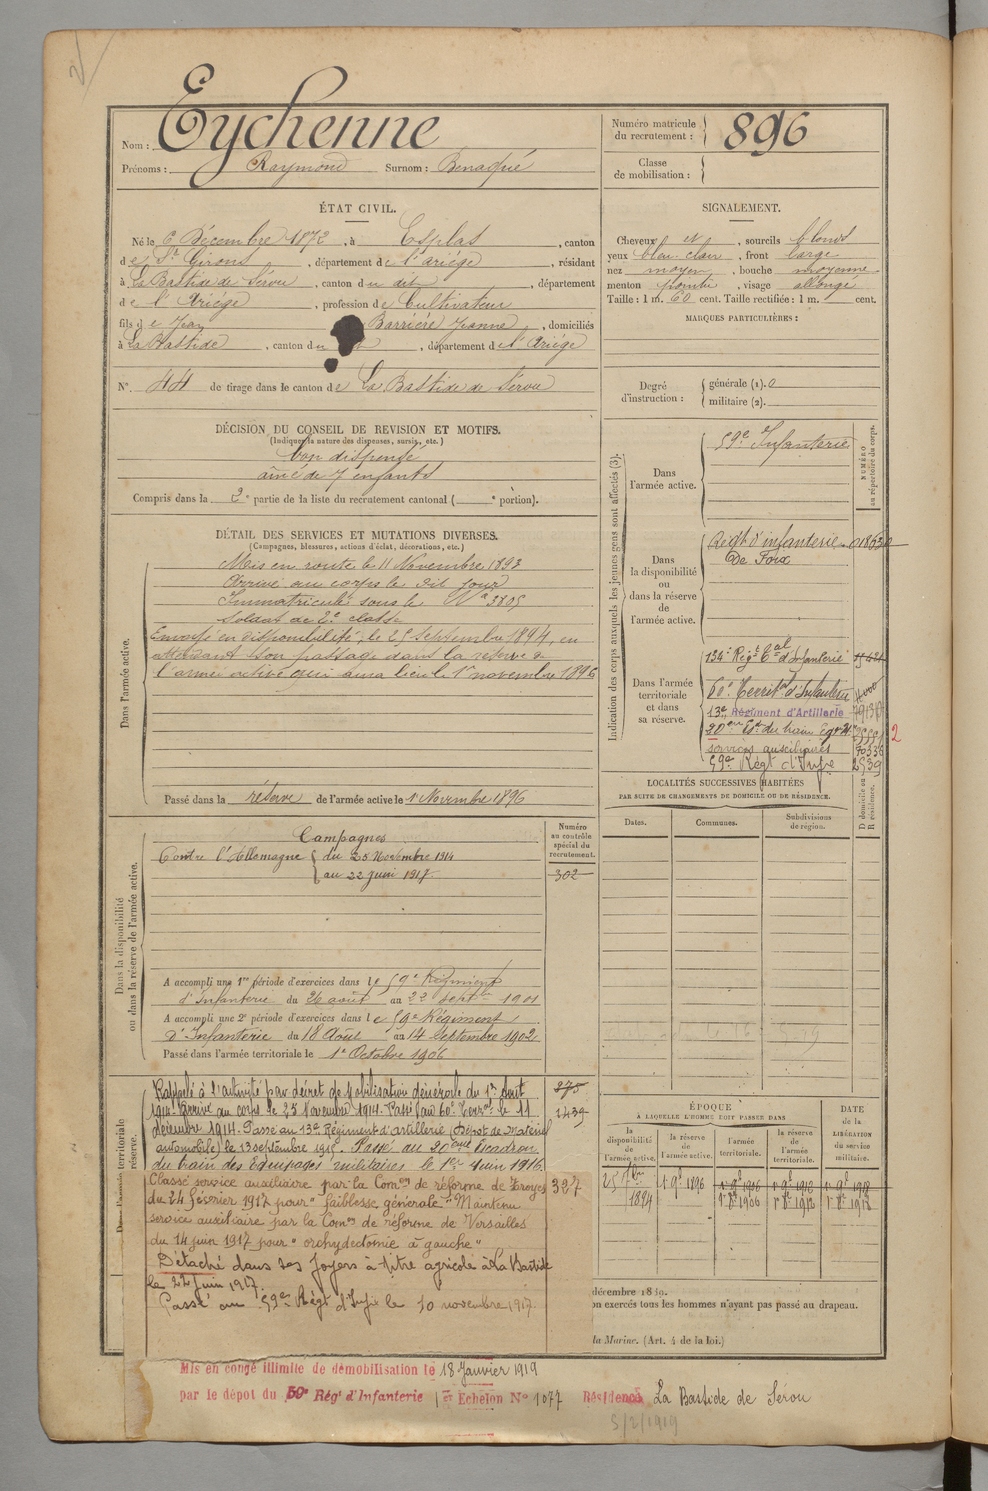 Nom : Eychenne
Prénoms : Raymond Surnom : Benaqué
Numéro matricule du recrutement : 896
Classe de mobilisation :
ÉTAT CIVIL.
Né le 6 Décembre 1872, à Esplas, canton
de St Girons, département de l'ariège, résidant
à La Bastide de Sérou, canton du dit, département
de l'Ariège, profession de Cultivateur
fils de Jean Barrière Jeanne, domiciliés
à La Bastide, canton du, département de l'Ariège
N° 44 de tirage dans le canton de La Bastide de Sérou
SIGNALEMENT.
Cheveux et, sourcils blonds
yeux bleu clair, front large
nez moyen, bouche moyenne
menton, visage allongé
Taille : 1 m. 60 cent. Taille rectifiée : 1 m. cent.
MARQUES PARTICULIÈRES :
Degré d'instruction : générale (1). 0
militaire (2).
DÉCISION DU CONSEIL DE REVISION ET MOTIFS.
(Indiquer la nature des dispenses, sursis, etc.)
bon dispensé
aîné de 7 enfants
Compris dans la 2e partie de la liste du recrutement cantonal ( e portion).
DÉTAIL DES SERVICES ET MUTATIONS DIVERSES.
(Campagnes, blessures, actions d'éclat, décorations, etc.)
Dans l'armée active.
Mis en route le 11 Novembre 1893
Arrivé au corps le dit jour
Immatriculé sous le N° 3805
Soldat de 2e classe
Envoyé en disponibilité le 25 Septembre 1894, en
attendant son passage dans la réserve de
l'armée active qui aura lieu le 1er novembre 1896
Passé dans la réserve de l'armée active le 1er Novembre 1896
Indication des corps auxquels les jeunes gens sont affectés (3).
NUMÉRO au répertoire du corps.
Dans l'armée active.
59e Infanterie
Dans la disponibilité ou dans la réserve de l'armée active.
Régt d'infanterie 01803
De Foix
Dans l'armée territoriale et dans sa réserve.
134e Régt Tal d'Infanterie
60e Territal d'Infanterie
13e Régiment d'Artillerie
20ème Est du train Eqes Mes
services auxiliaires
59e Régt d'Infie 2539
2
LOCALITÉS SUCCESSIVES HABITÉES
PAR SUITE DE CHANGEMENTS DE DOMICILE OU DE RÉSIDENCE.
Dates. Communes. Subdivisions de région. D domicile ou R résidence.
Dans la disponibilité ou dans la réserve de l'armée active.
Numéro au contrôle spécial du recrutement.
Campagnes
Contre l'Allemagne du 25 Novembre 1914
au 22 juin 1917
302
A accompli une 1re période d'exercices dans le 59e Régiment
d'Infanterie du 26 août au 22 Sept. 1901
A accompli une 2e période d'exercices dans le 59e Régiment
D'Infanterie du 18 Août au 14 Septembre 1902
Passé dans l'armée territoriale le 1er Octobre 1906
Rappelé à l'activité par décret de mobilisation générale du 1er Août
1914. Arrivé au corps le 25 Novembre 1914. Passé au 60e Terral le 11
décembre 1914. Passé au 13e Régiment d'artillerie (Dépôt de Matériel
automobile) le 13 septembre 1915. Passé au 20ème Escadron
du train des équipages militaires le 1er Juin 1916
375
1439
Classé service auxiliaire par la Comon de réforme de Troyes
du 24 février 1917 pour "faiblesse générale" Maintenu
service auxiliaire par la Comon de réforme de Versailles
du 14 juin 1917 pour "orchydectomie à gauche"
327
Détaché dans ses foyers à titre agricole à La Bastide
le 22 juin 1917.
Passé au 59e Régt d'Infie le 10 novembre 1917
ÉPOQUE
À LAQUELLE L'HOMME DOIT PASSER DANS
DATE de la LIBÉRATION du service militaire.
la disponibilité de l'armée active. la réserve de l'armée active. l'armée territoriale. la réserve de l'armée territoriale.
25 7bre 1894 1er 9bre 1896 1er 9bre 1906 1er 9bre 1912 1er 9bre 1918
1er 8bre 1906 1er 8bre 1912 1er 8bre 1918
on exercés tous les hommes n'ayant pas passé au drapeau.
la Marine. (Art. 4 de la loi.)
Mis en congé illimité de démobilisation le 18 Janvier 1919
par le dépôt du 59e Régt d'Infanterie 1er Echelon N° 1077 Résidence La Bastide de Sérou
5/2/1919